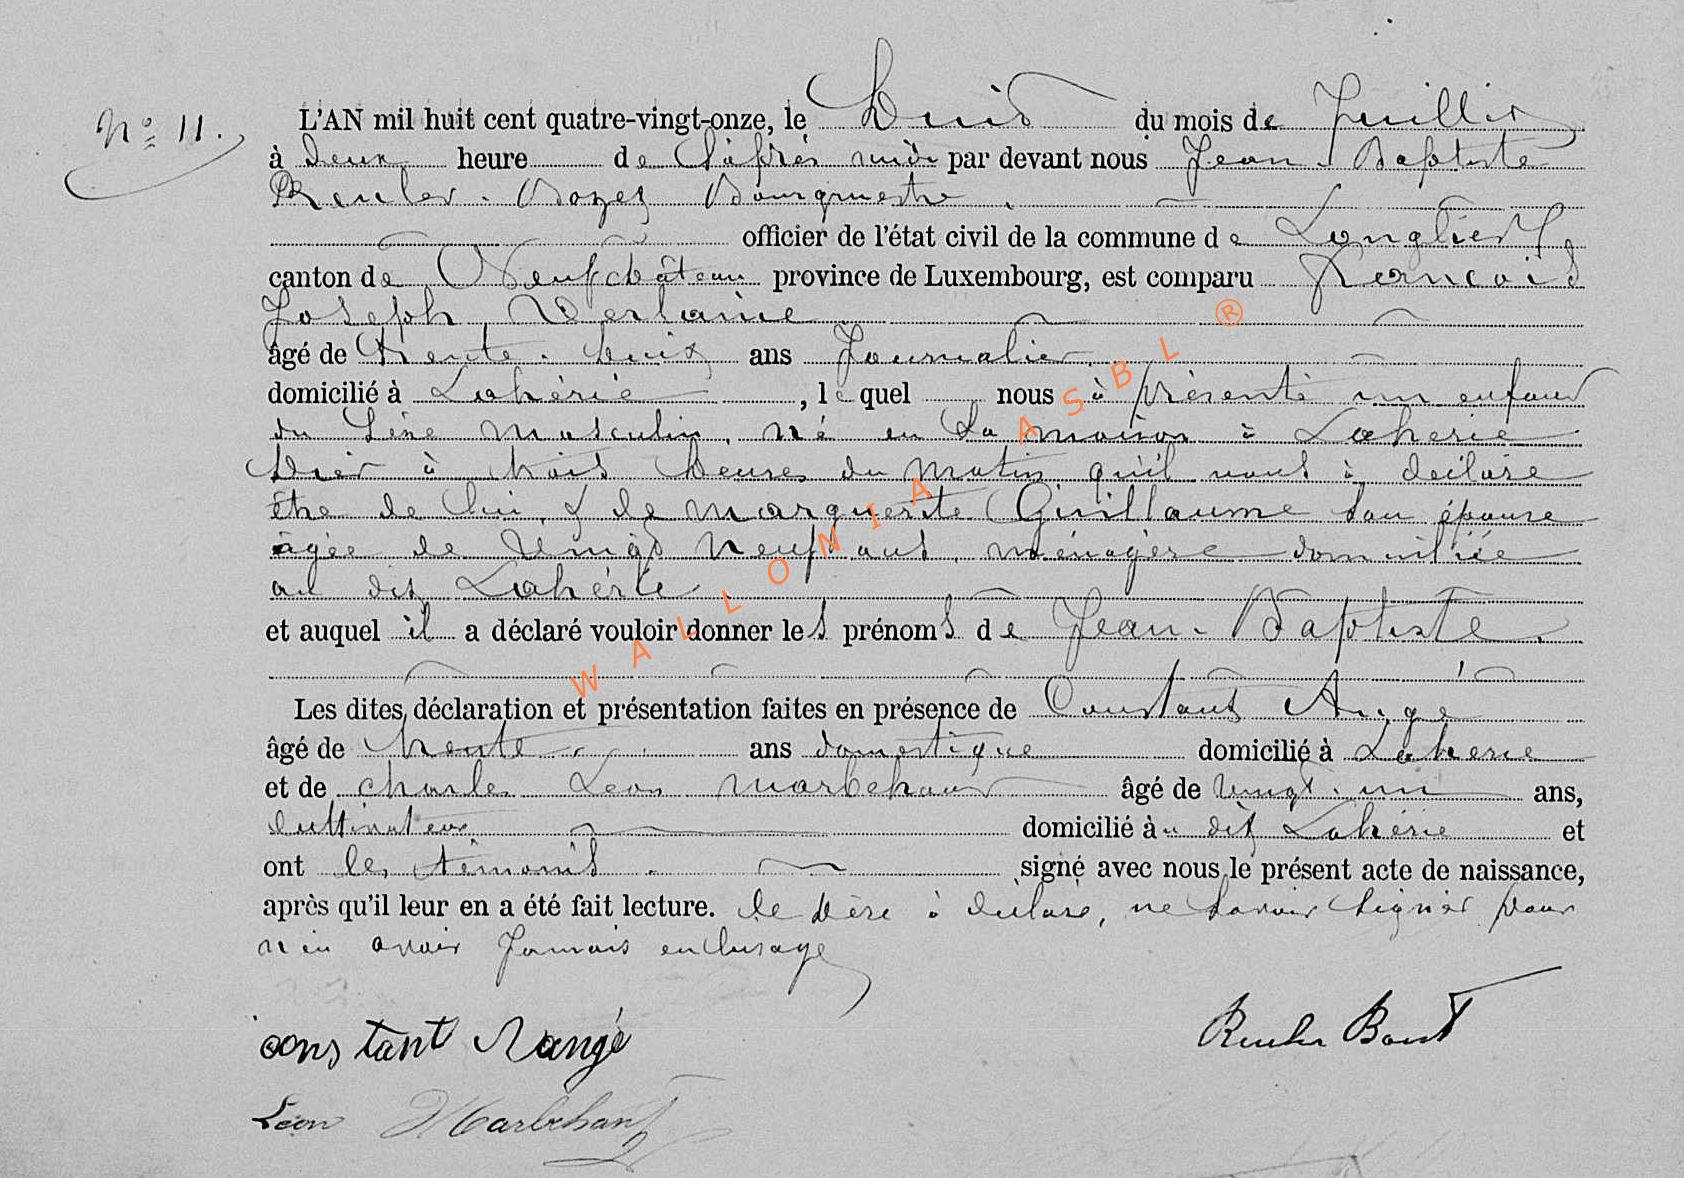 N° 11.
L'AN mil huit cent quatre-vingt-onze, le huit du mois de Juillet
à deux heure de l'après midi par devant nous Jean-Baptiste
Reuler-Bozet Bourgmestre
officier de l'état civil de la commune de Longlier
canton de Neufchâteau province de Luxembourg, est comparu François
Joseph Verlaine
âgé de trente-huit ans Journalier
domicilié à Lahérie, lequel nous à présenté un enfant
du Sexe masculin, né en Sa maison à Laherie
hier à trois heures du matin qu'il nous à déclaré
être de lui, & de Marguerite Guillaume Son épouse
agée de Vingt Neuf ans ménagère domiciliée
au dit Lahérie
et auquel il a déclaré vouloir donner les prénoms de Jean-Baptiste.
Les dites déclaration et présentation faites en présence de Constant Angé
âgé de trente ans domestique domicilié à Laherie
et de charles Léon Marbehant âgé de Vingt-un ans,
Cultivateur domicilié au dit Lahérie et
ont les témoins signé avec nous le présent acte de naissance,
après qu'il leur en a été fait lecture. le père à déclaré, ne Savoir Signer pour
n'en avoir Jamais eu l'usage
constant Nangé
Reuler Bozet
Léon Marbehant
WALLONIA ASBL ®